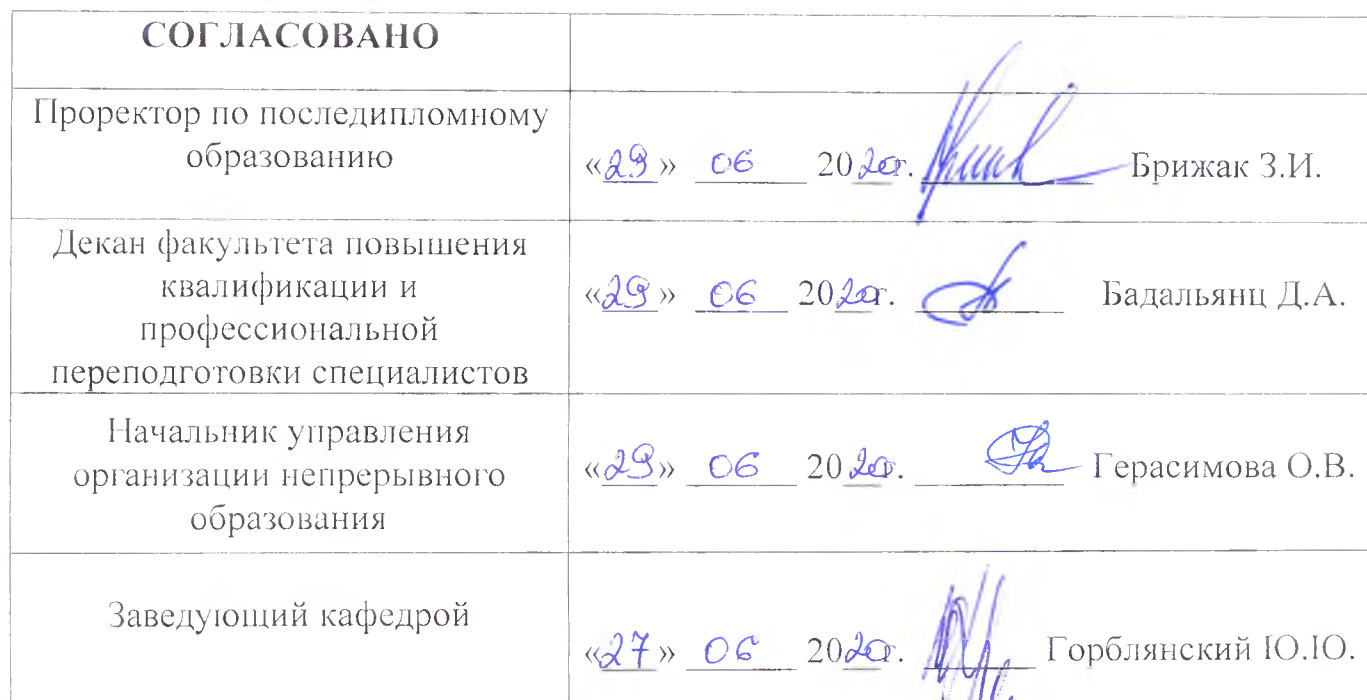 СОГЛАСОВАНО
Проректор по последипломному
образованию
«29» 06 2020г. Брижак З.И.
Декан факультета повышения
квалификации и
профессиональной
переподготовки специалистов
«29» 06 2020г. Бадальянц Д.А.
Начальник управления
организации непрерывного
образования
«29» 06 2020г. Герасимова О.В.
Заведующий кафедрой
«27» 06 2020г. Горблянский Ю.Ю.